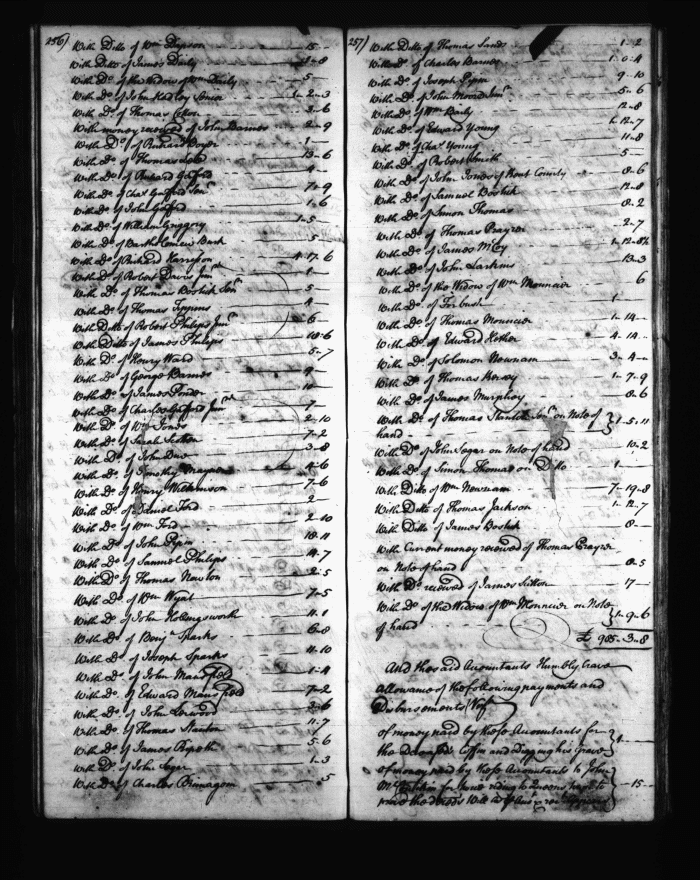 256)
With Ditto of Wm Dipson 15
With Ditto of James Daily 3-8
With Do. of the Widow of Wm Daily 5
With Do. of John Hadley Senior 1-2-3
With Do. of Thomas 3-6
With money received of John Barnes 2-9
With Do. of Richard Boyer 1
With Do. of Thomas 13-6
With Do. of Richard Gafford 4
With Do. of Chas. Gafford Senr. 7-9
With Do. of John Gafford 1-6
With Do. of William Griggory 1-5
With Do. of Bartholomew 5
With Do. of Richard Harrison 4-17-6
With Do. of Robert Davis Junr. 1
With Do. of Thomas Bostick Senr. 5
With Do. of Thomas Tippins 4
With Ditto of Robert Philips Junr. 6
With Ditto of James Philips 18-6
With Do. of Henry Ward 5-7
With Do. of George Barnes 9
With Do. of James Ponder 10
With Do. of Charles Gafford Junr. 7
With Do. of Wm Jones 2-10
With Do. of Sarah Sexton 7-2
With Do. of John 3-8
With Do. of Timothy 4-6
With Do. of Henry Wilkinson 7-6
With Do. of Daniel Ford 2
With Do. of Wm Ford 2-10
With Do. of John Pipin 18-11
With Do. of Samuel Philips 14-7
With Do. of Thomas Newton 2-5
With Do. of Wm Wyat 7-5
With Do. of John Holingsworth 11-1
With Do. of Benja. Sparks 6-8
With Do. of Joseph Sparks 11-10
With Do. of John Mansfield 1-4
With Do. of Edward Mansfield 7-2
With Do. of John 3-6
With Do. of Thomas Stanton 11-7
With Do. of James 5-6
With Do. of John Seger 1-3
With Do. of Charles 5
257)
With Ditto of Thomas Sands 1-2
With Do. of Charles Barnes 1-0-4
With Do. of Joseph Pipin 9-10
With Do. of John 5-6
With Do. of Wm Baily 12-8
With Do. of Edward Young 1-12-7
With Do. of Chas. Young 11-8
With Do. of Robert Smith 5
With Do. of John Jones of Kent County 8-6
With Do. of Samuel Bostick 12-8
With Do. of Simon Thomas 8-2
With Do. of Thomas Prayzer 2-7
With Do. of James McCoy 1-12-8½
With Do. of John Larkins 13-3
With Do. of the Widow of Wm Monneur 6
With Do. of Forbush 1
With Do. of Thomas Monneur 1-14
With Do. of Edward Hether 4-14
With Do. of Solomon Newnam 3-4
With Do. of Thomas Hersey 1-7-9
With Do. of James Murphey 8-6
With Do. of Thomas Senr. on Note of
hand 1-5-11
With Do. of John Segar on Note of hand 10-2
With Do. of Simon Thomas on Ditto 1
With Ditto of Wm Newnam 7-19-8
With Ditto of Thomas Jackson 1-12-7
With Ditto of James Bostick 8
With Current money received of Thomas Prayzer
on Note of hand 8-5
With Do. received of James Sutton 17
With Do. of the Widow of Wm Monneur on Note
of hand 1-9-6
£ 905-3-8
And the said Accountants Humbly Crave
allowance of the following payments and
Disbursements (Vizt
of money paid by these Accountants for
the Deceased's Coffin and Digging his Grave 1
of money paid by these Accountants to John
for twice riding to Queens Town to
prove the deced's Will 15